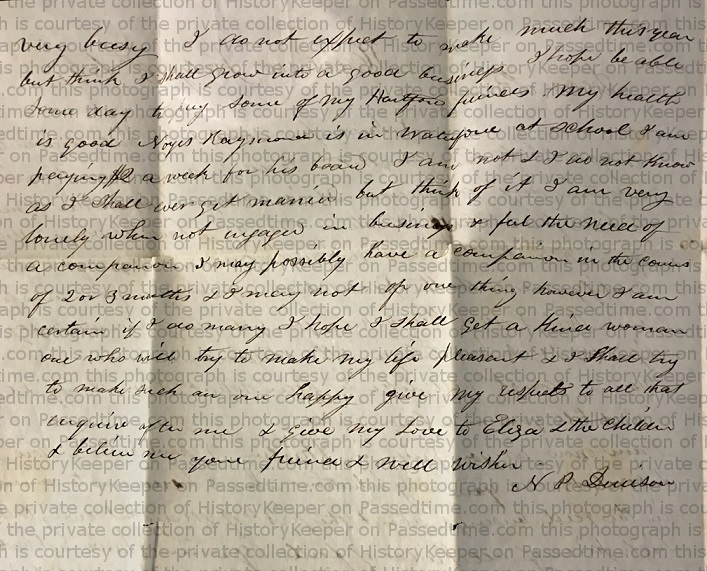 very busy I do not expect to make much this year
but think I shall grow into a good business I hope be able
some day to my some of my Hartford friends My health
is good Noyes Haymond is in at School I am
paying $2 a week for his board I am not & I do not know
as I shall ever get married but think of it I am very
lonely when not engaged in business & feel the need of
a companion I may possibly have a companion in the course
of 2 or 3 months & I may not of one thing however I am
certain if I do marry I hope I shall get a kind woman
one who will try to make my life pleasant & I shall try
to make such an one happy give my respects to all that
enquire after me & give my love to Eliza & the children
& believe me your friend & well wisher
N. P. Denison
this photograph is courtesy of the private collection of HistoryKeeper on Passedtime.com